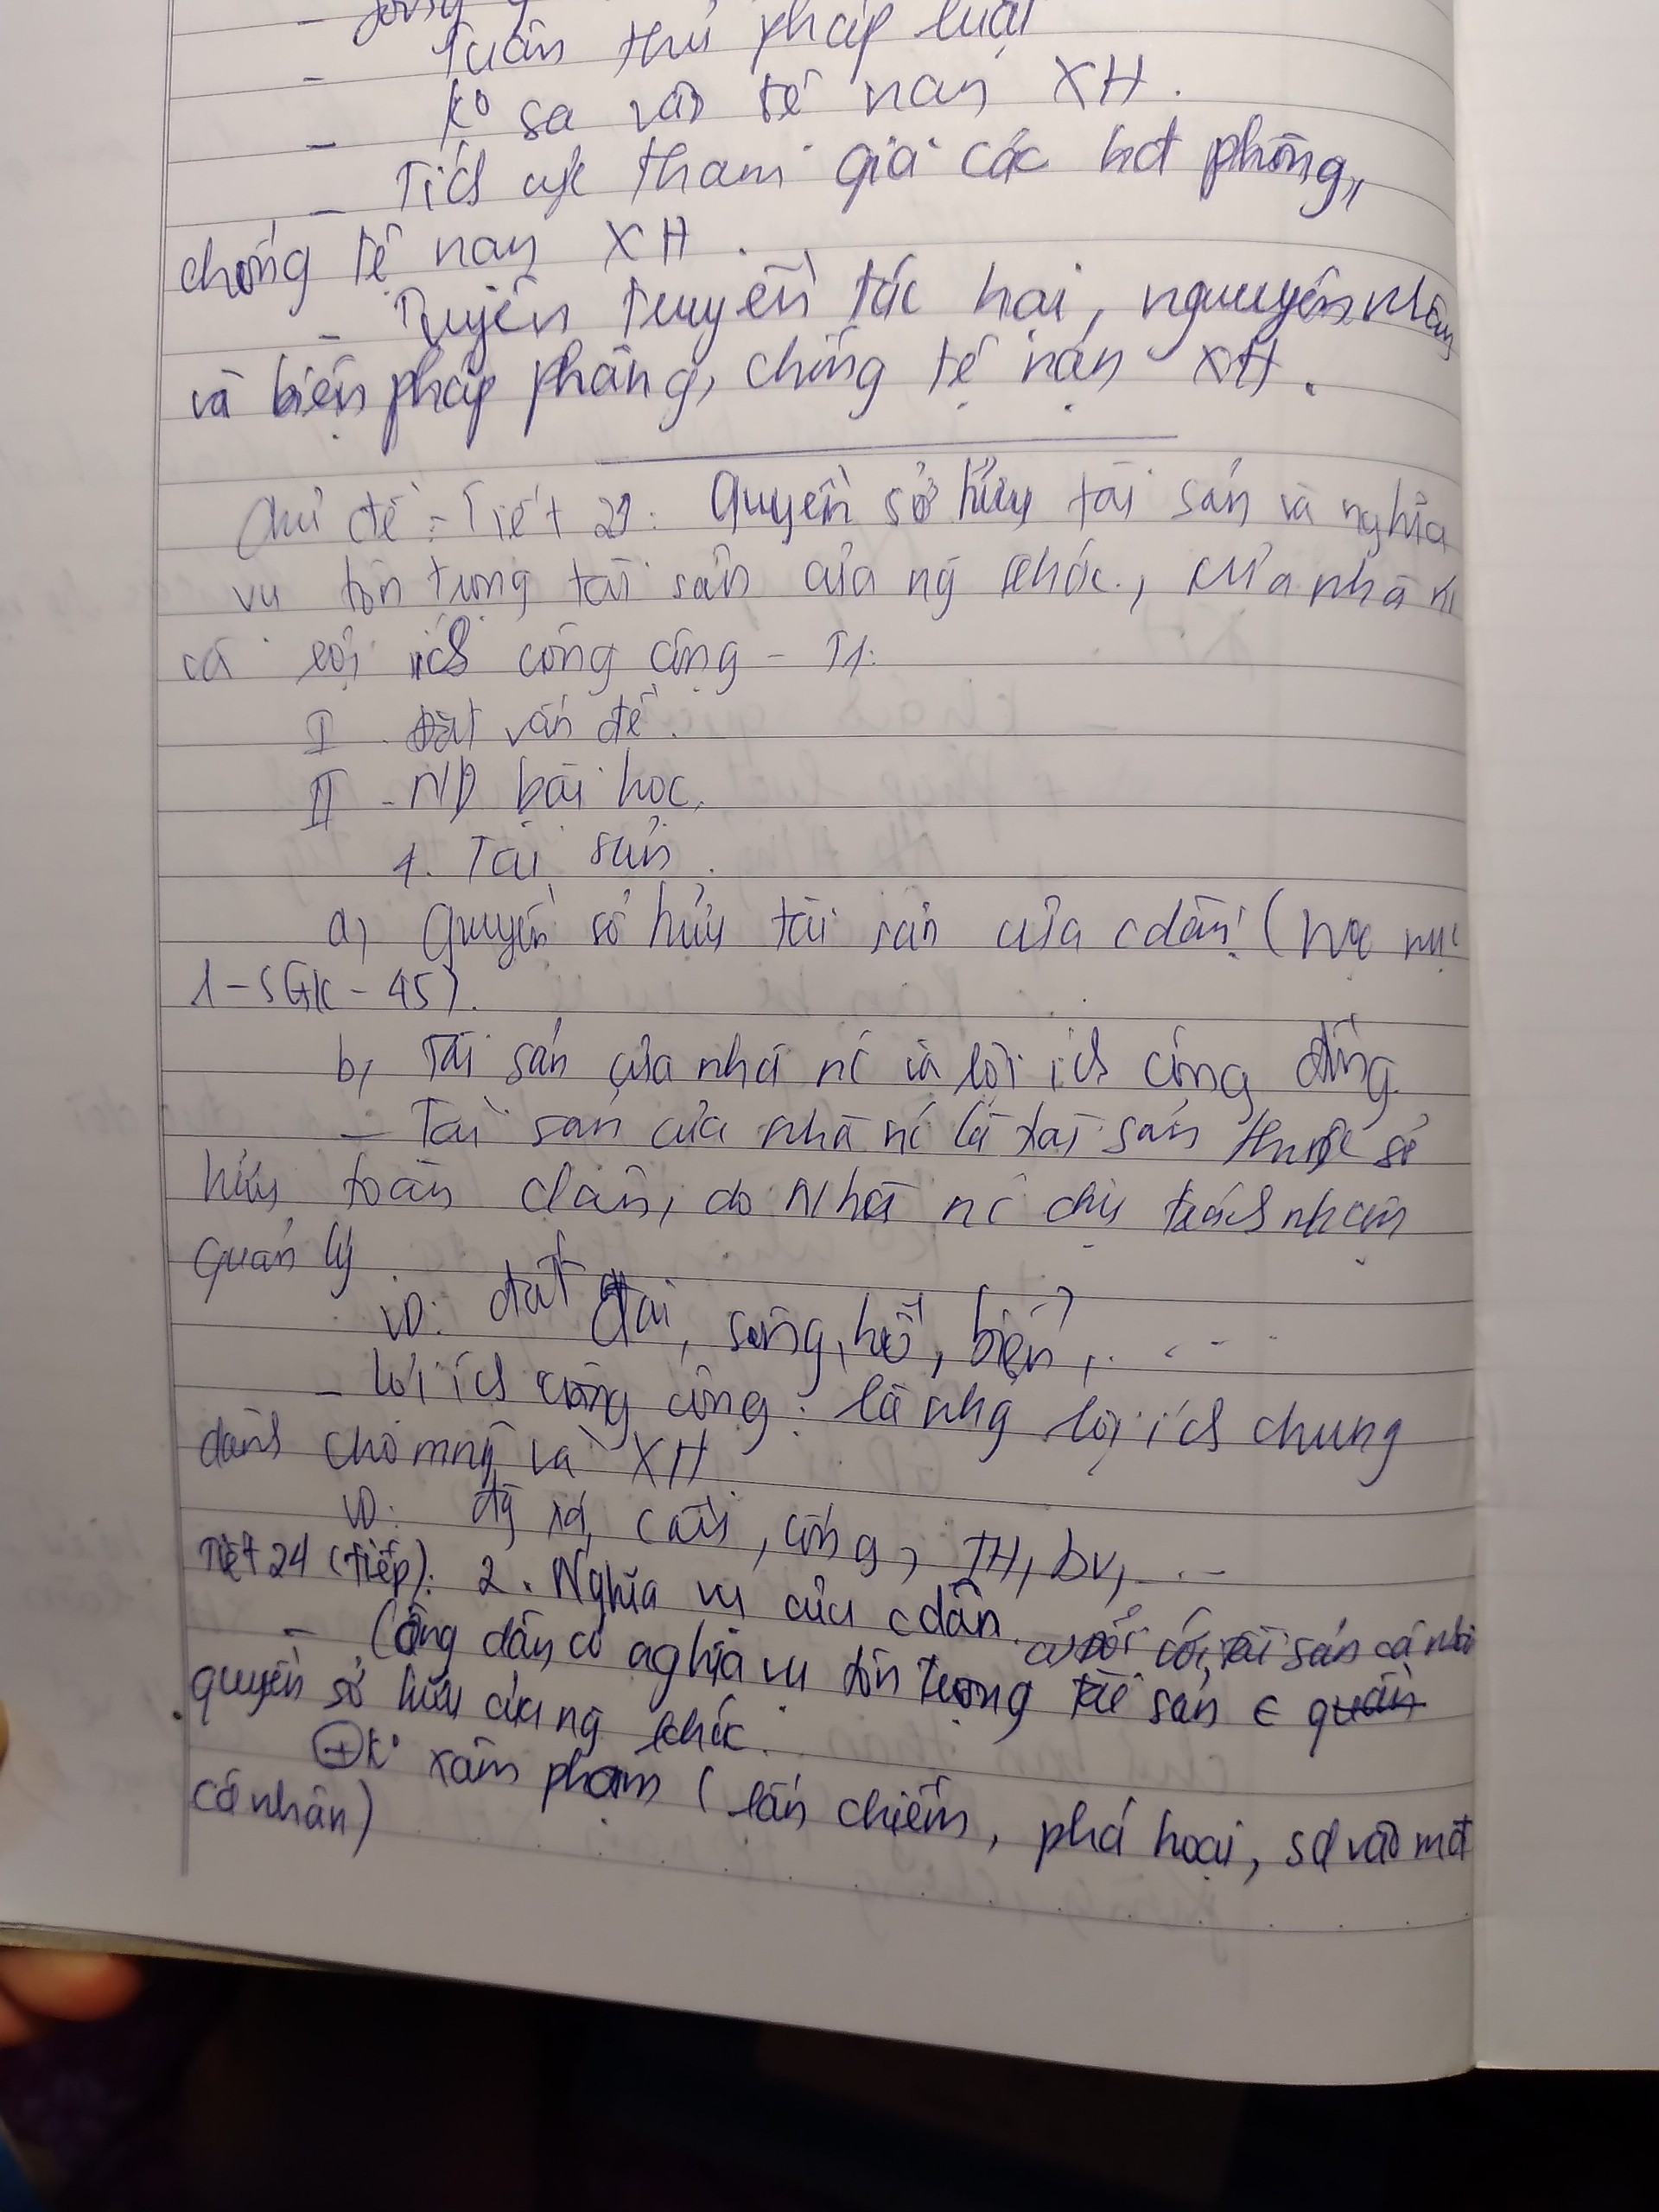 - Tuân thủ pháp luật
- K° sa vào tệ nạn XH.
- Tích cực tham gia các hđ phòng,
chống tệ nạn XH.
- Tuyên truyền tác hại, nguyên nhân
và biện pháp phòng, chống tệ nạn XH.
Chủ đề: Tiết 23: Quyền sở hữu tài sản và nghĩa
vụ tôn trọng tài sản của ng khác, của nhà nc
và lợi ích công cộng - T1.
I. Đặt vấn đề.
II - ND bài học.
1. Tài sản.
a, Quyền sở hữu tài sản của cdân: (học mục
1-SGK-45).
b, Tài sản của nhà nc và lợi ích công cộng.
- Tài sản của nhà nc là tài sản thuộc sở
hữu toàn dân, do Nhà nc chịu trách nhiệm
quản lý
VD: đất đai, sông, hồ, biển,...
- Lợi ích công cộng: là nhg lợi ích chung
dành cho mng và XH
VD: đg xá, cầu, cống, TH, bv,...
Tiết 24 (tiếp): 2. Nghĩa vụ của cdân.
a) Đối với tài sản cá nhân
- Công dân có nghĩa vụ tôn trọng tài sản ∈ quân
quyền sở hữu của ng khác.
⊕ K° xâm phạm (lấn chiếm, phá hoại, sd vào mđ
cá nhân)